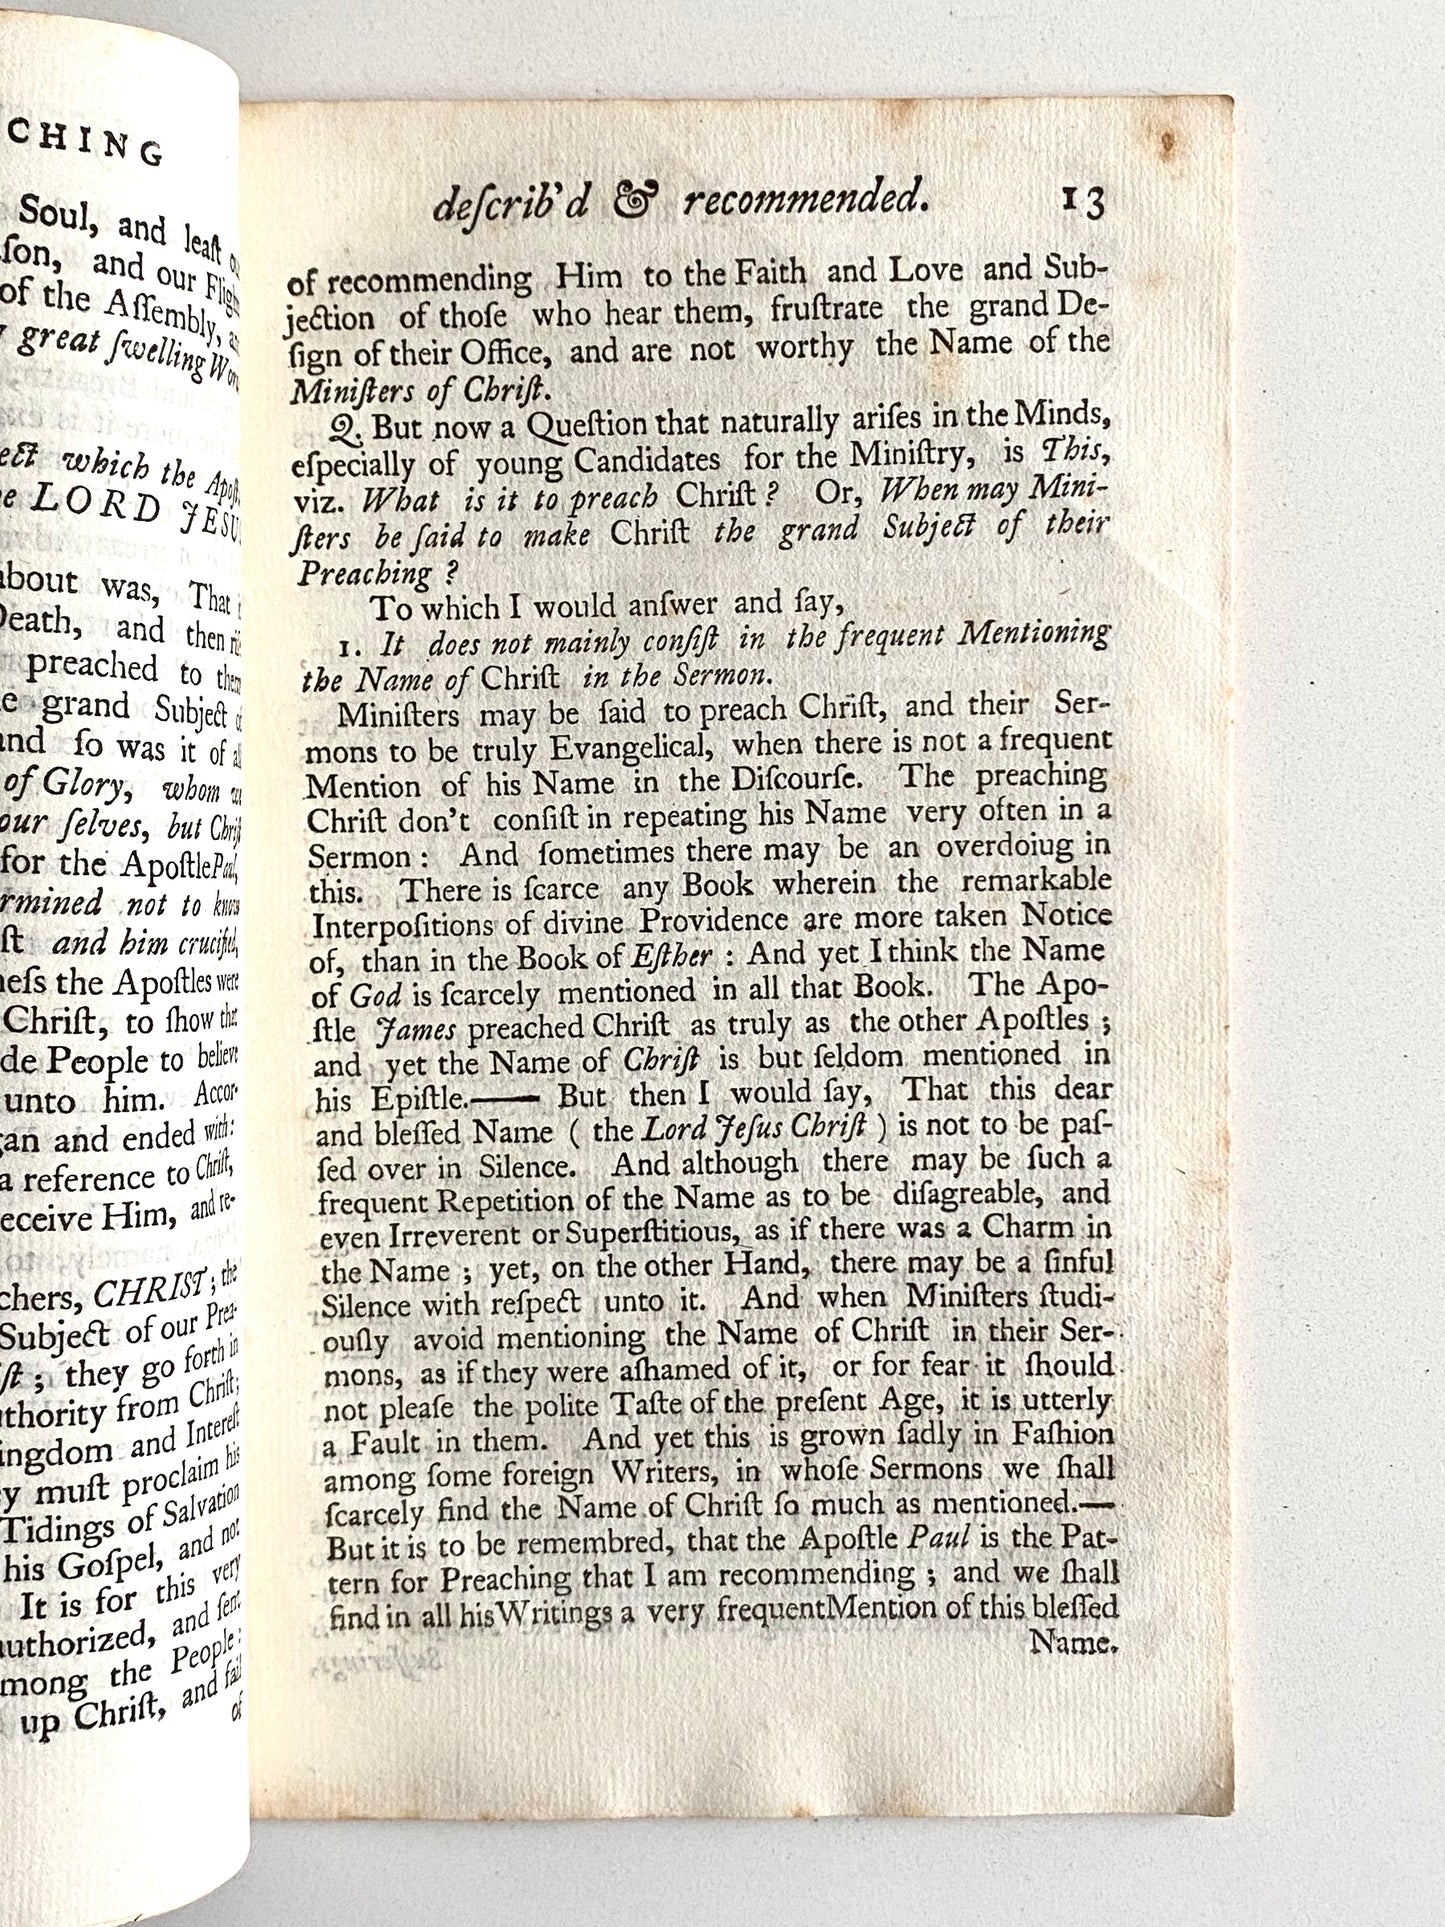 CHING
Soul, and leaſt
ſon, and our Fligh
of the Aſſembly,
great ſwelling Wor
which the Apoſt
LORD JESU
about was, That
Death, and then
preached to them
grand Subject
and ſo was it of
of Glory, whom
our ſelves, but Chriſ
for the Apoſtle Paul,
rmined not to know
ſt and him crucified,
neſs the Apoſtles were
Chriſt, to ſhow that
de People to believe
unto him. Accor-
gan and ended with:
a reference to Chriſt,
eceive Him, and re-
chers, CHRIST; the
Subject of our Prea-
ſt; they go forth in
uthority from Chriſt;
ingdom and Intereſt
y muſt proclaim his
Tidings of Salvation
his Goſpel, and not
It is for this very
authorized, and ſent
mong the People:
up Chriſt, and fail
of
deſcrib'd & recommended. 13
of recommending Him to the Faith and Love and Sub-
jection of thoſe who hear them, fruſtrate the grand De-
ſign of their Office, and are not worthy the Name of the
Miniſters of Chriſt.
Q. But now a Queſtion that naturally ariſes in the Minds,
eſpecially of young Candidates for the Miniſtry, is This,
viz. What is it to preach Chriſt? Or, When may Mini-
ſters be ſaid to make Chriſt the grand Subject of their
Preaching?
To which I would anſwer and ſay,
1. It does not mainly conſiſt in the frequent Mentioning
the Name of Chriſt in the Sermon.
Miniſters may be ſaid to preach Chriſt, and their Ser-
mons to be truly Evangelical, when there is not a frequent
Mention of his Name in the Diſcourſe. The preaching
Chriſt don't conſiſt in repeating his Name very often in a
Sermon: And ſometimes there may be an overdoiug in
this. There is ſcarce any Book wherein the remarkable
Interpoſitions of divine Providence are more taken Notice
of, than in the Book of Eſther: And yet I think the Name
of God is ſcarcely mentioned in all that Book. The Apo-
ſtle James preached Chriſt as truly as the other Apoſtles;
and yet the Name of Chriſt is but ſeldom mentioned in
his Epiſtle.—— But then I would ſay, That this dear
and bleſſed Name (the Lord Jeſus Chriſt) is not to be paſ-
ſed over in Silence. And although there may be ſuch a
frequent Repetition of the Name as to be diſagreable, and
even Irreverent or Superſtitious, as if there was a Charm in
the Name; yet, on the other Hand, there may be a ſinful
Silence with reſpect unto it. And when Miniſters ſtudi-
ouſly avoid mentioning the Name of Chriſt in their Ser-
mons, as if they were aſhamed of it, or for fear it ſhould
not pleaſe the polite Taſte of the preſent Age, it is utterly
a Fault in them. And yet this is grown ſadly in Faſhion
among ſome foreign Writers, in whoſe Sermons we ſhall
ſcarcely find the Name of Chriſt ſo much as mentioned.—
But it is to be remembred, that the Apoſtle Paul is the Pat-
tern for Preaching that I am recommending; and we ſhall
find in all his Writings a very frequent Mention of this bleſſed
Name.